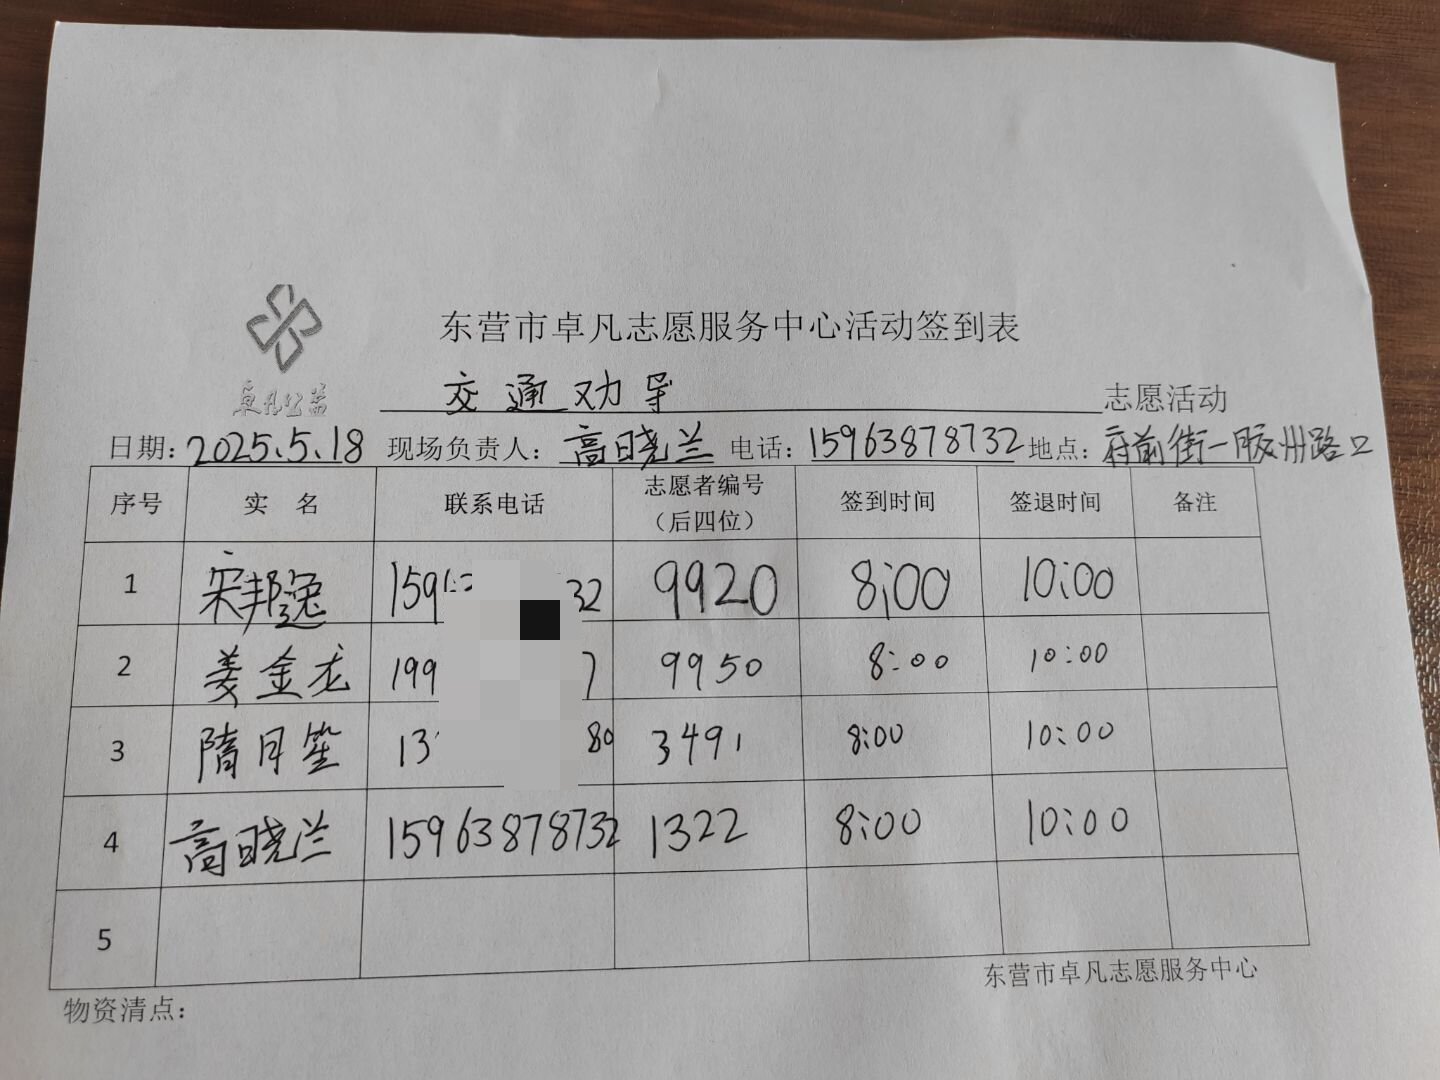 东营市卓凡志愿服务中心活动签到表
卓凡公益
交通劝导 志愿活动
日期：2025.5.18 现场负责人：高晓兰 电话：15963878732 地点：府前街一胶州路口
序号 实 名 联系电话 志愿者编号（后四位） 签到时间 签退时间 备注
1 宋邦逸 1596 32 9920 8:00 10:00
2 姜金龙 199 7 9950 8:00 10:00
3 隋月笙 13 80 3491 8:00 10:00
4 高晓兰 15963878732 1322 8:00 10:00
5
东营市卓凡志愿服务中心
物资清点：